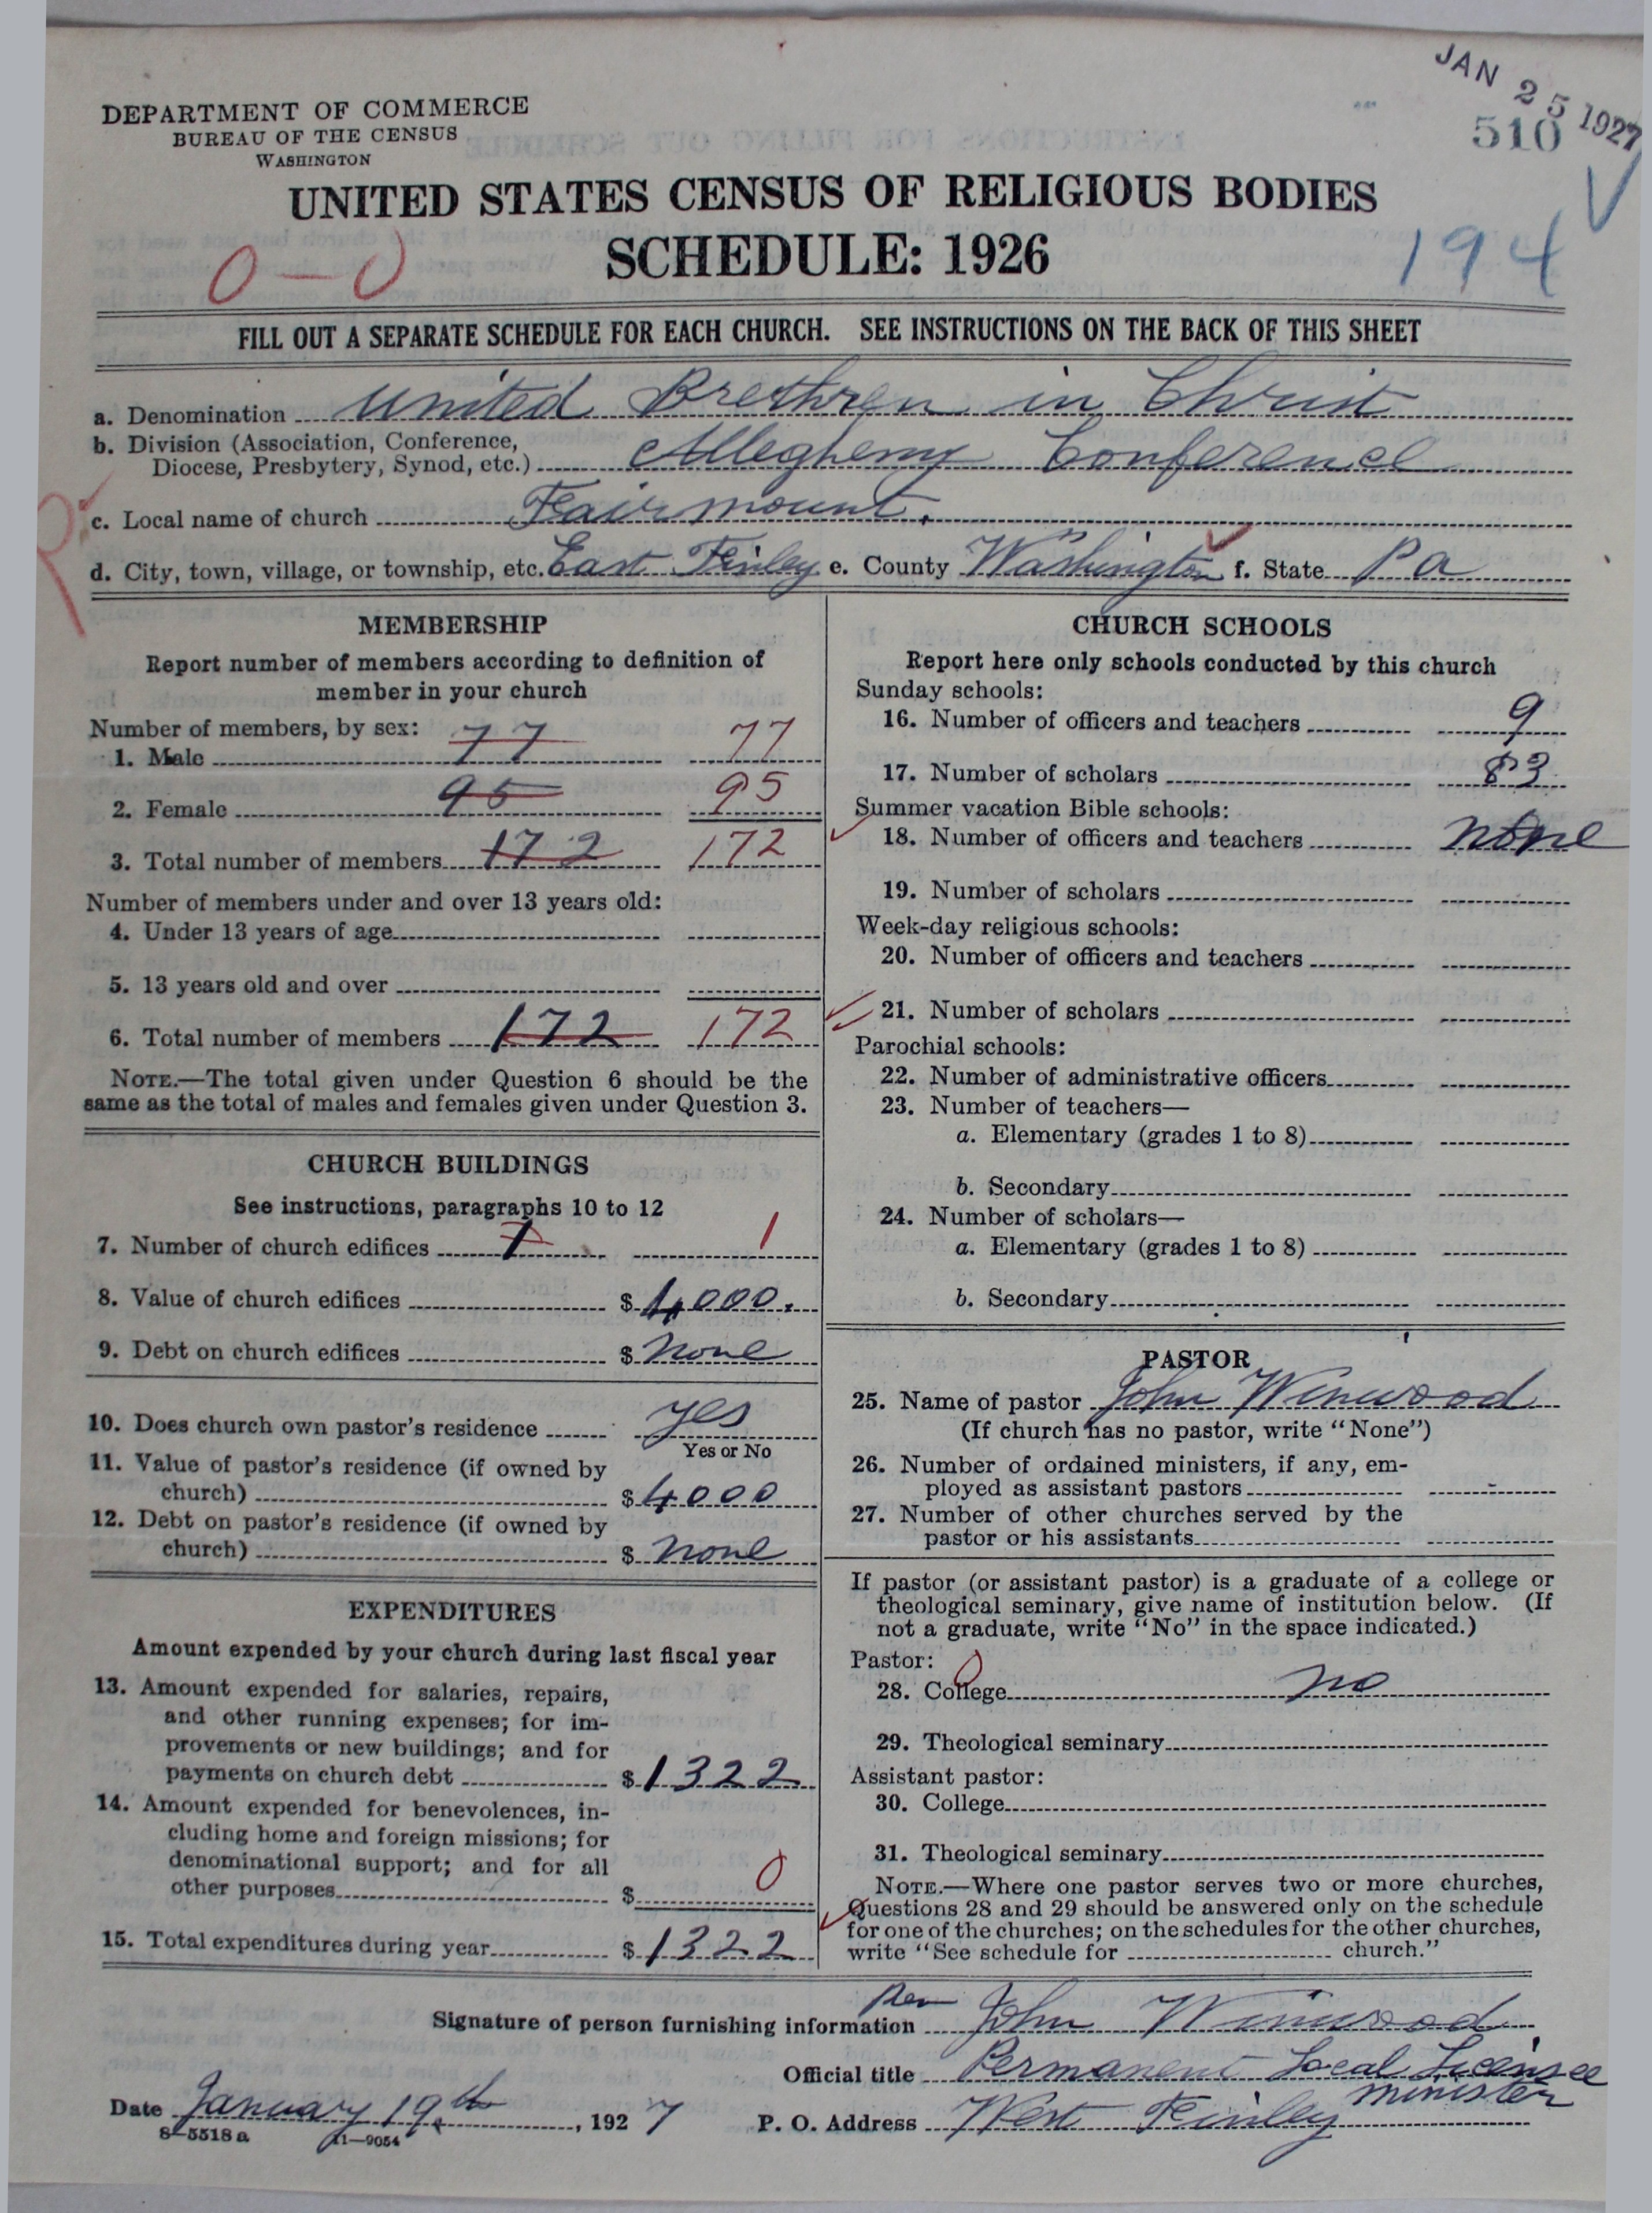 JAN 25 1927
510
DEPARTMENT OF COMMERCE
BUREAU OF THE CENSUS
WASHINGTON
UNITED STATES CENSUS OF RELIGIOUS BODIES
SCHEDULE: 1926
0—0
194
FILL OUT A SEPARATE SCHEDULE FOR EACH CHURCH. SEE INSTRUCTIONS ON THE BACK OF THIS SHEET
a. Denomination United Brethren in Christ
b. Division (Association, Conference,
Diocese, Presbytery, Synod, etc.) Allegheny Conference
R
c. Local name of church Fairmount.
d. City, town, village, or township, etc. East Finley e. County Washington f. State Pa
MEMBERSHIP
Report number of members according to definition of
member in your church
Number of members, by sex:
1. Male 77 77
2. Female 95 95
3. Total number of members 172 172
Number of members under and over 13 years old:
4. Under 13 years of age
5. 13 years old and over
6. Total number of members 172 172
NOTE.—The total given under Question 6 should be the
same as the total of males and females given under Question 3.
CHURCH BUILDINGS
See instructions, paragraphs 10 to 12
7. Number of church edifices 1 1
8. Value of church edifices $ 4000.
9. Debt on church edifices $ none
10. Does church own pastor's residence yes
Yes or No
11. Value of pastor's residence (if owned by
church) $ 4000
12. Debt on pastor's residence (if owned by
church) $ none
EXPENDITURES
Amount expended by your church during last fiscal year
13. Amount expended for salaries, repairs,
and other running expenses; for im-
provements or new buildings; and for
payments on church debt $ 1322
14. Amount expended for benevolences, in-
cluding home and foreign missions; for
denominational support; and for all
other purposes $ 0
15. Total expenditures during year $ 1322
CHURCH SCHOOLS
Report here only schools conducted by this church
Sunday schools:
16. Number of officers and teachers 9
17. Number of scholars 83
Summer vacation Bible schools:
18. Number of officers and teachers none
19. Number of scholars
Week-day religious schools:
20. Number of officers and teachers
21. Number of scholars
Parochial schools:
22. Number of administrative officers
23. Number of teachers—
a. Elementary (grades 1 to 8)
b. Secondary
24. Number of scholars—
a. Elementary (grades 1 to 8)
b. Secondary
PASTOR
25. Name of pastor John Winwood
(If church has no pastor, write "None")
26. Number of ordained ministers, if any, em-
ployed as assistant pastors -
27. Number of other churches served by the
pastor or his assistants
If pastor (or assistant pastor) is a graduate of a college or
theological seminary, give name of institution below. (If
not a graduate, write "No" in the space indicated.)
Pastor: 0
28. College no
29. Theological seminary
Assistant pastor:
30. College
31. Theological seminary
NOTE.—Where one pastor serves two or more churches,
Questions 28 and 29 should be answered only on the schedule
for one of the churches; on the schedules for the other churches,
write "See schedule for church."
Signature of person furnishing information Rev John Winwood
Official title Permanent Local Licensee
minister
Date January 19th, 1927 P. O. Address West Finley
8—5518 a 11—9054